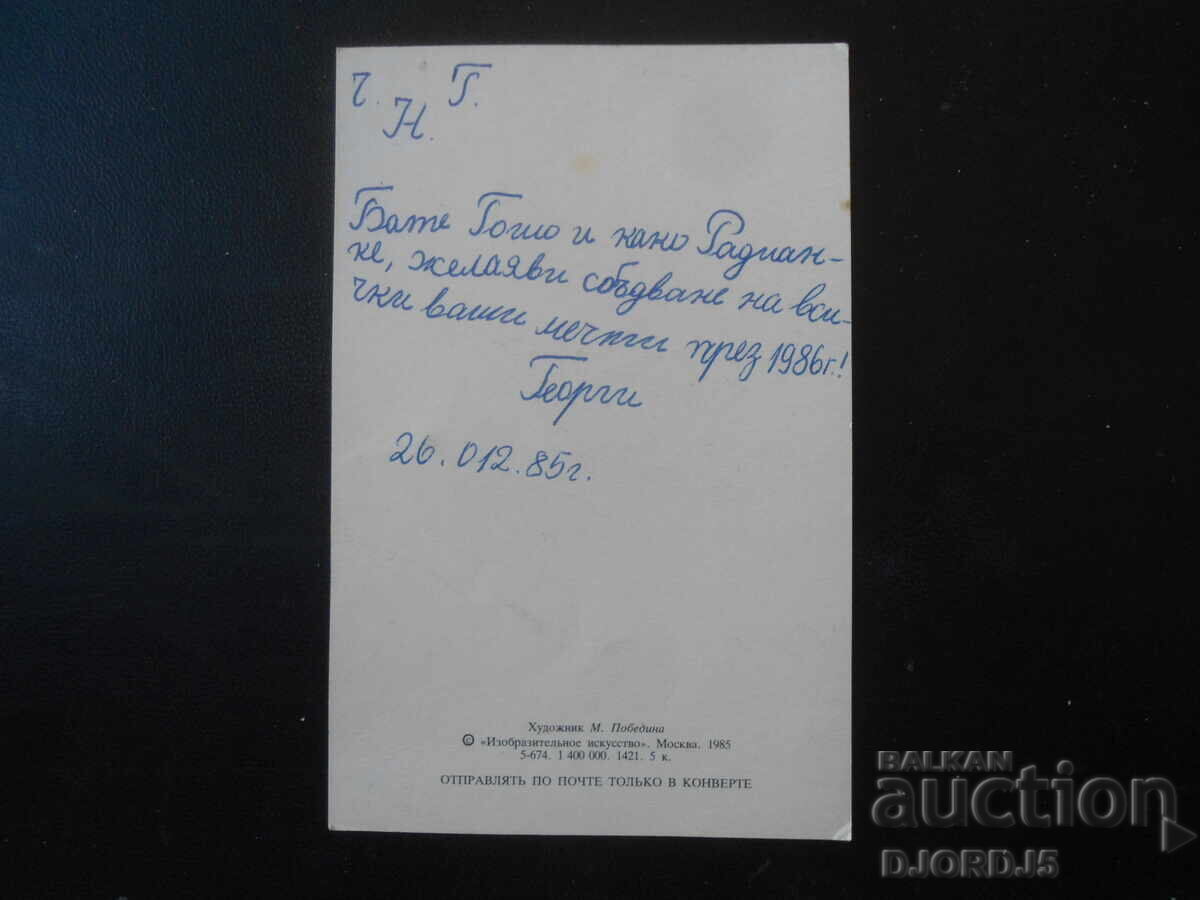 Ч. Г.
Н.
Бате Гошо и како Радиан-
ке, желаяви сбъдване на вси-
чки ваши мечти през 1986г.!
Георги
26.012.85г.
Художник М. Победина
© «Изобразительное искусство». Москва. 1985
5-674. 1 400 000. 1421. 5 к.
ОТПРАВЛЯТЬ ПО ПОЧТЕ ТОЛЬКО В КОНВЕРТЕ
BALKAN
auction
DJORDJ5